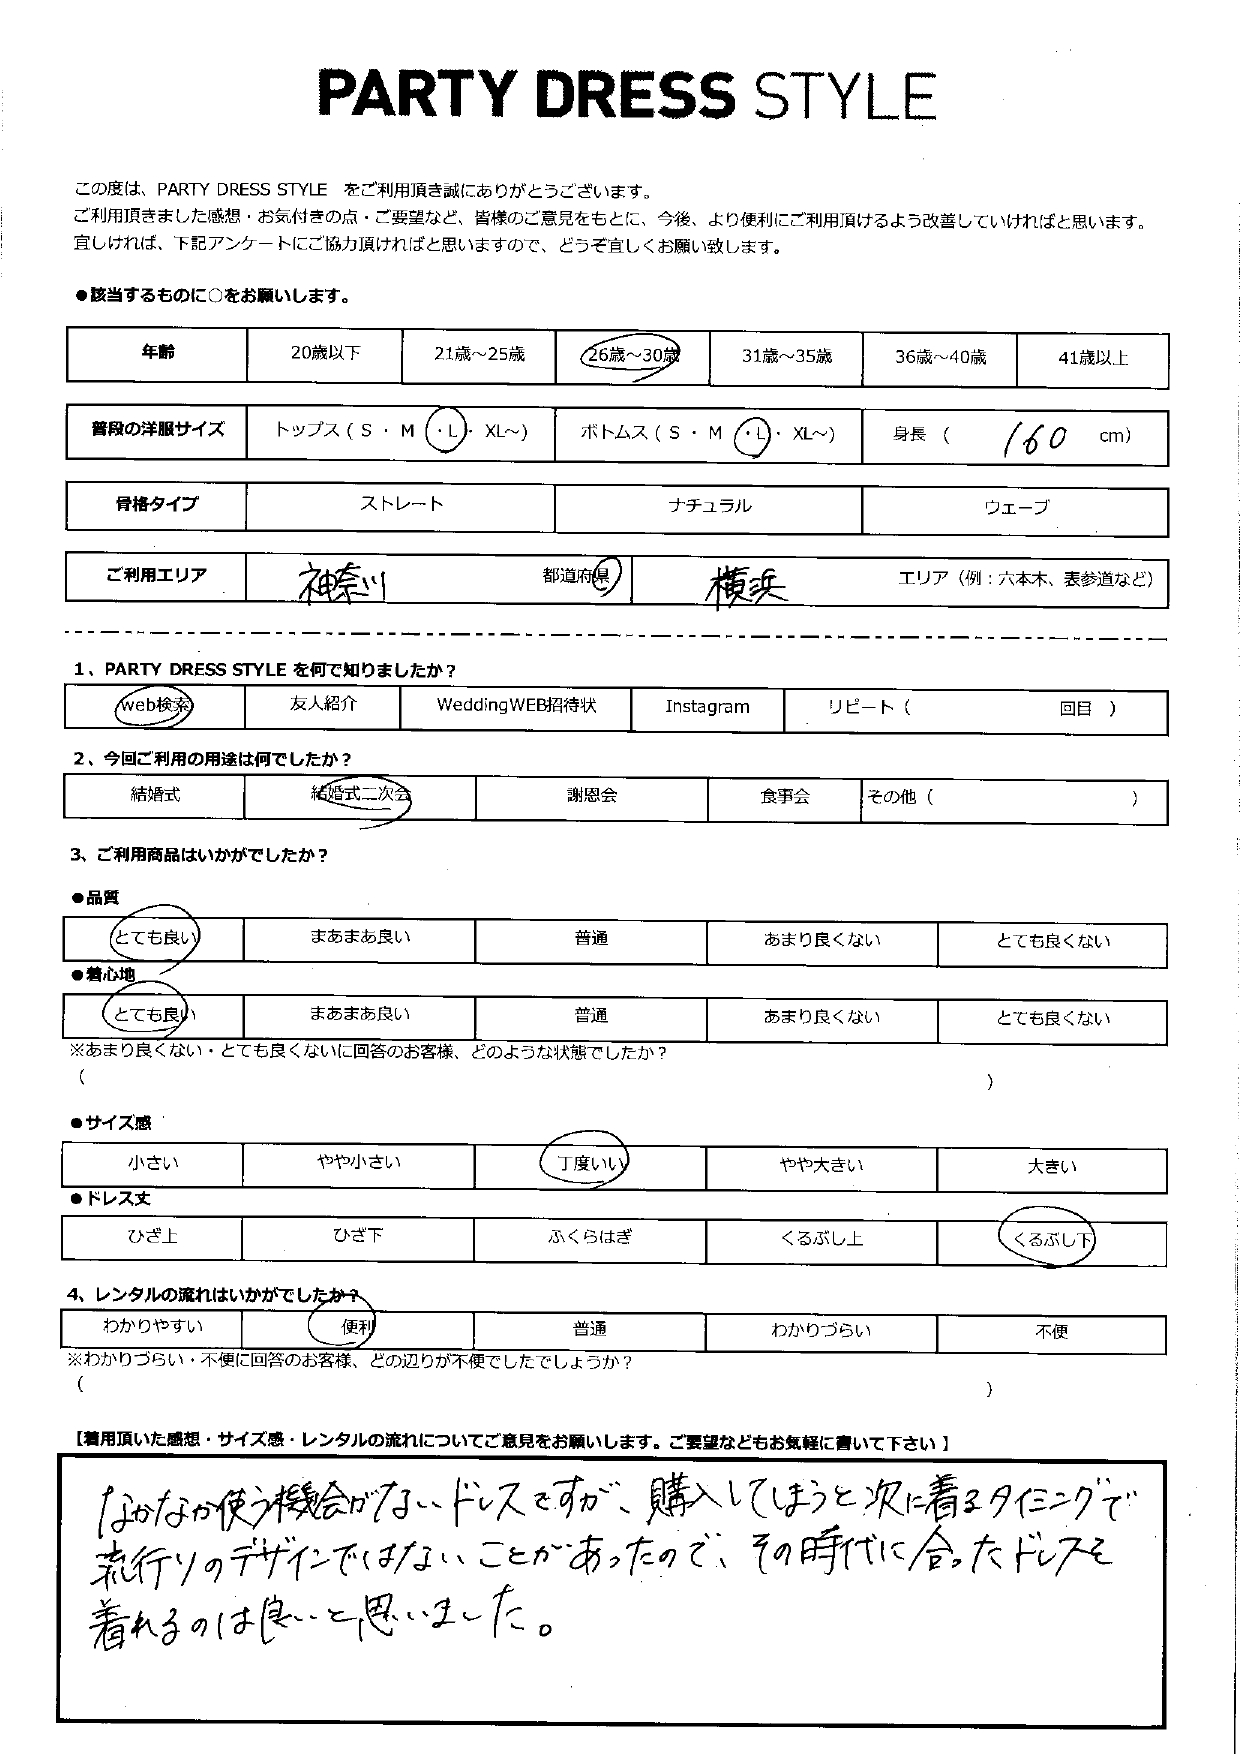 PARTY DRESS STYLE
この度は、PARTY DRESS STYLE をご利用頂き誠にありがとうございます。
ご利用頂きました感想・お気付きの点・ご要望など、皆様のご意見をもとに、今後、より便利にご利用頂けるよう改善していければと思います。
宜しければ、下記アンケートにご協力頂ければと思いますので、どうぞ宜しくお願い致します。
●該当するものに○をお願いします。
年齢 20歳以下 21歳～25歳 26歳～30歳 31歳～35歳 36歳～40歳 41歳以上
普段の洋服サイズ トップス ( S ・ M ・L・ XL～) ボトムス ( S ・ M ・L・ XL～) 身長 ( 160 cm)
骨格タイプ ストレート ナチュラル ウェーブ
ご利用エリア 神奈川 都道府県 横浜 エリア（例：六本木、表参道など）
1、PARTY DRESS STYLE を何で知りましたか？
web検索 友人紹介 WeddingWEB招待状 Instagram リピート ( 回目 )
2、今回ご利用の用途は何でしたか？
結婚式 結婚式二次会 謝恩会 食事会 その他 ( )
3、ご利用商品はいかがでしたか？
●品質
とても良い まあまあ良い 普通 あまり良くない とても良くない
●着心地
とても良い まあまあ良い 普通 あまり良くない とても良くない
※あまり良くない・とても良くないに回答のお客様、どのような状態でしたか？
( )
●サイズ感
小さい やや小さい 丁度いい やや大きい 大きい
●ドレス丈
ひざ上 ひざ下 ふくらはぎ くるぶし上 くるぶし下
4、レンタルの流れはいかがでしたか？
わかりやすい 便利 普通 わかりづらい 不便
※わかりづらい・不便に回答のお客様、どの辺りが不便でしたでしょうか？
( )
【着用頂いた感想・サイズ感・レンタルの流れについてご意見をお願いします。ご要望などもお気軽に書いて下さい 】
なかなか使う機会がないドレスですが、購入してしまうと次に着るタイミングで
流行りのデザインではないことがあったので、その時代に合ったドレスを
着れるのは良いと思いました。